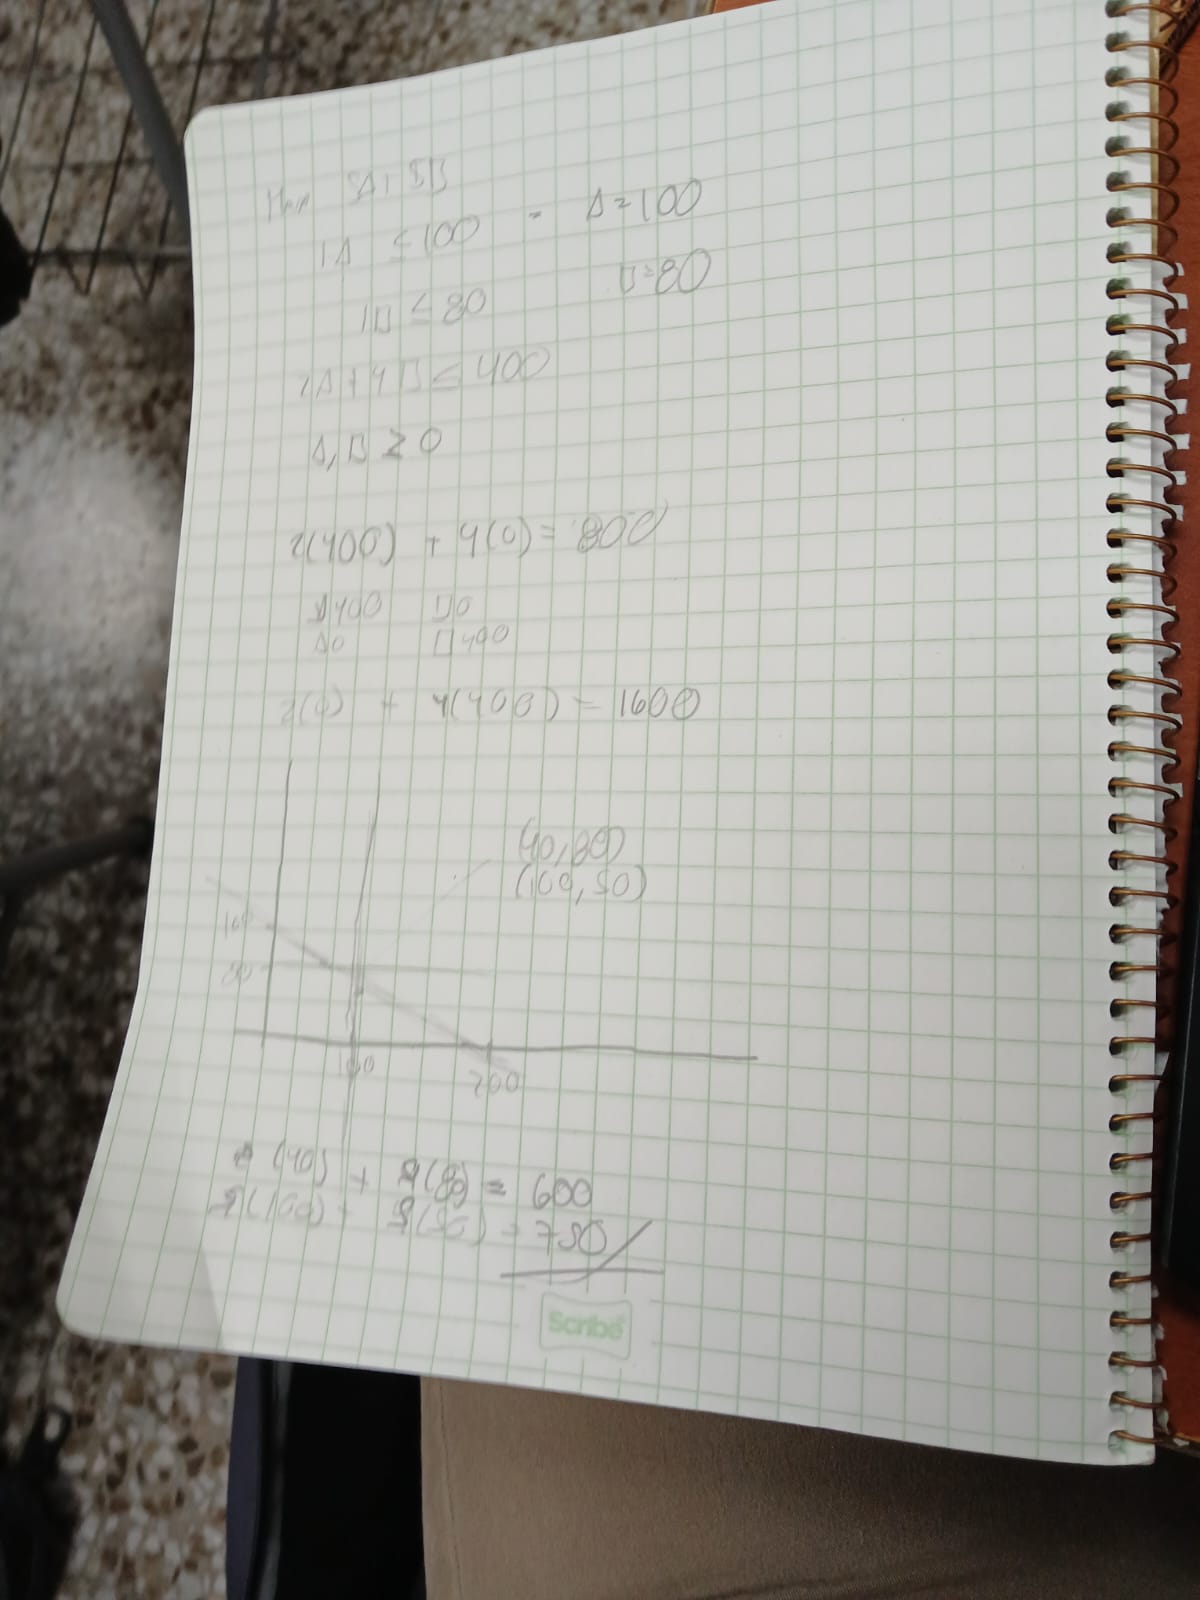 Max 5A+5B
1A ≤100 - A=100
1B ≤ 80 B=80
2A+4B≤400
A,B ≥ 0
2(400) + 4(0)= 800
A400 B0
A0 B400
2(0) + 4(400)=1600
(40,80)
(100,50)
100
80
100 200
(40) + (80) = 600
(100) (50) = 750
Scribe